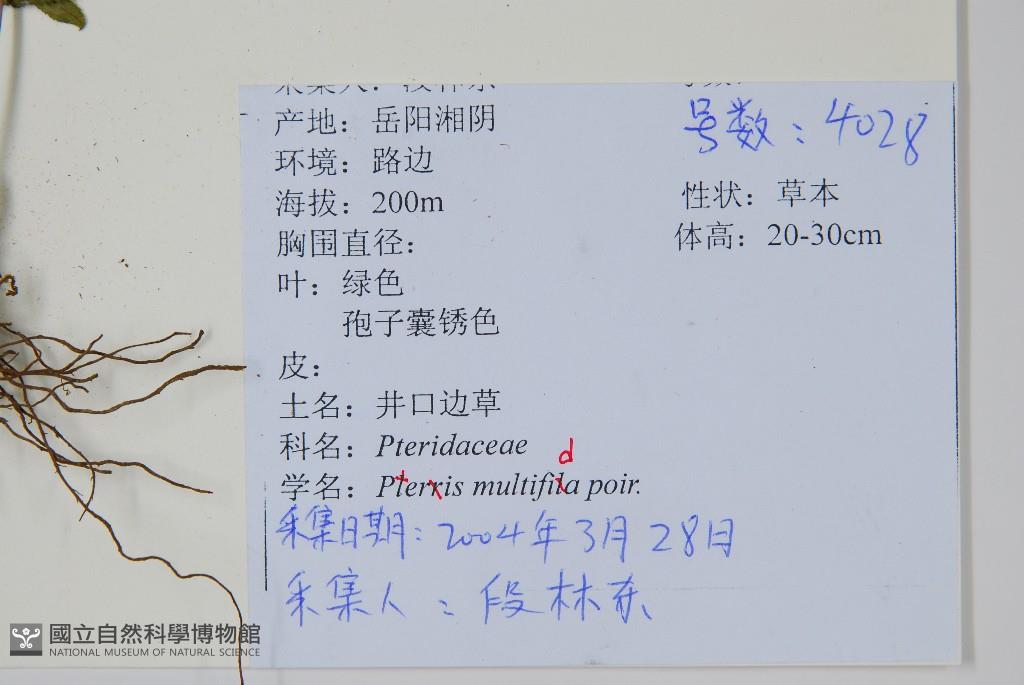 产地：岳阳湘阴
号数：4028
环境：路边
海拔：200m
性状：草本
胸围直径：
体高：20-30cm
叶：绿色
孢子囊锈色
皮：
土名：井口边草
科名：Pteridaceae
d
学名：Plerris multifila poir.
采集日期：2004年3月28日
采集人：段林东
國立自然科學博物館
NATIONAL MUSEUM OF NATURAL SCIENCE